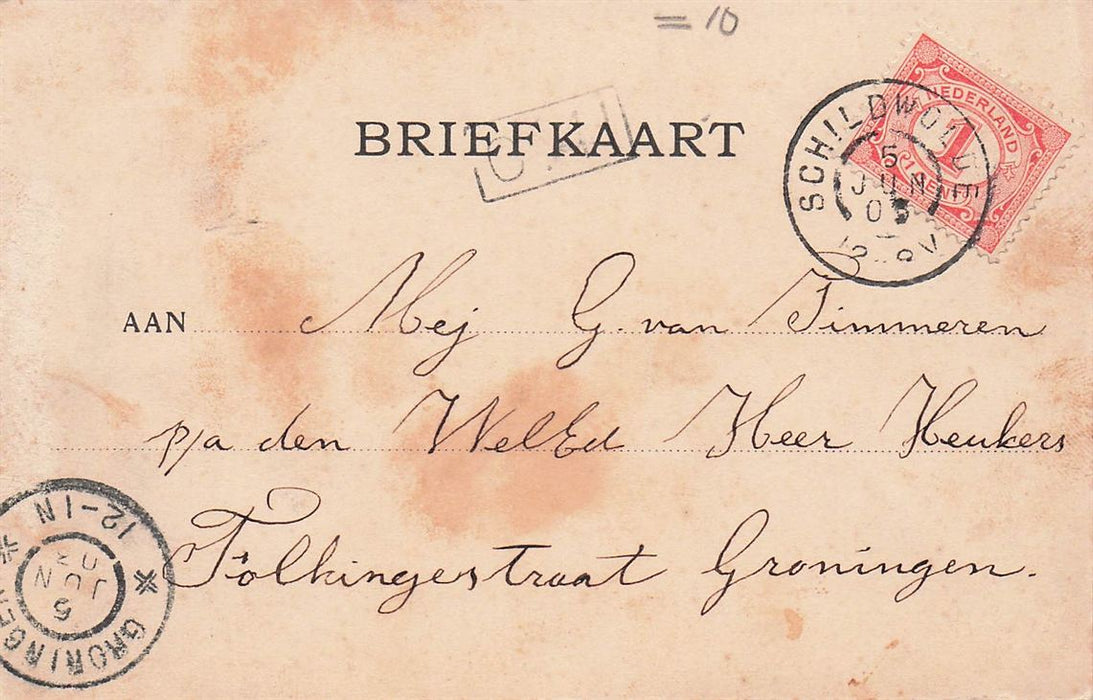 = 10
BRIEFKAART
NEDERLAND
1
CENT
SCHILDWOLDE
5
JUN
AAN Mej G. van Timmeren
p/a den WelEd Heer Heukers
Folkingestraat Groningen.
GRONINGEN
5
JUN
12-1N